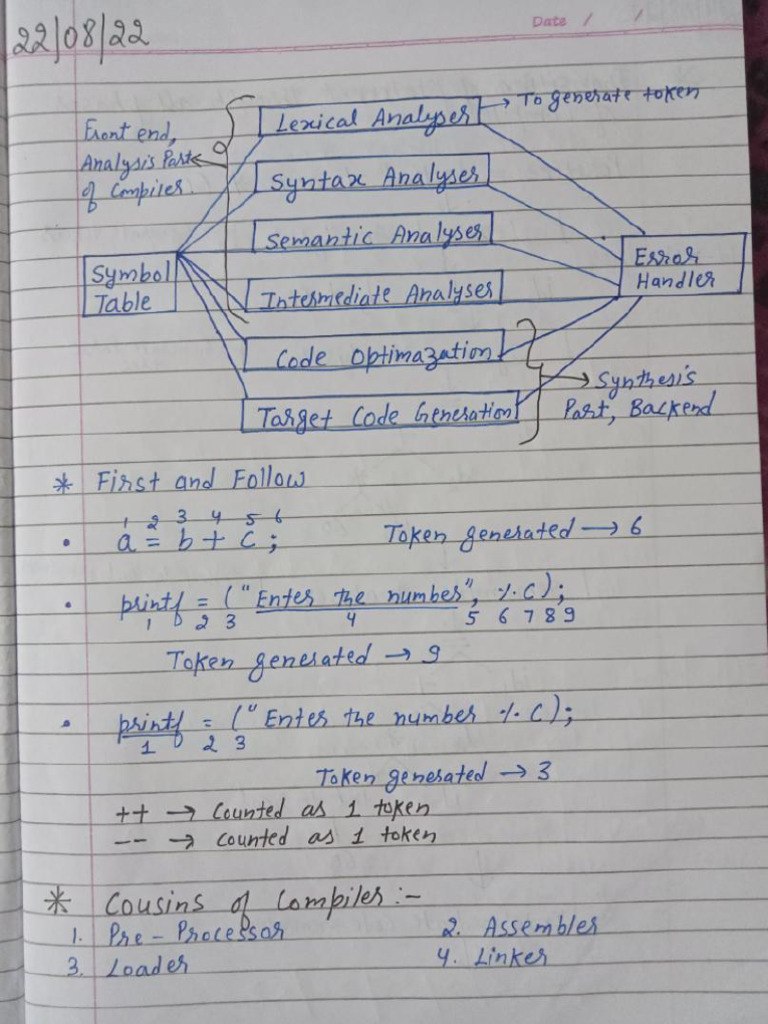 Date / /
22/08/22
Front end,
Analysis Part
of Compiler.
Lexical Analyser → To generate token
Syntax Analyser
Semantic Analyser
Intermediate Analyser
Code Optimazation
Target Code Generation
Symbol
Table
Error
Handler
→ Synthesis
Part, Backend
* First and Follow
1 2 3 4 5 6
• a = b + c ; Token generated → 6
• printf = ("Enter the number", %. C);
1 2 3 4 5 6 7 8 9
Token generated → 9
• printf = ("Enter the number %. C);
1 2 3
Token generated → 3
++ → Counted as 1 token
-- → counted as 1 token
* Cousins of Compiler :-
1. Pre - Processor 2. Assembler
3. Loader 4. Linker